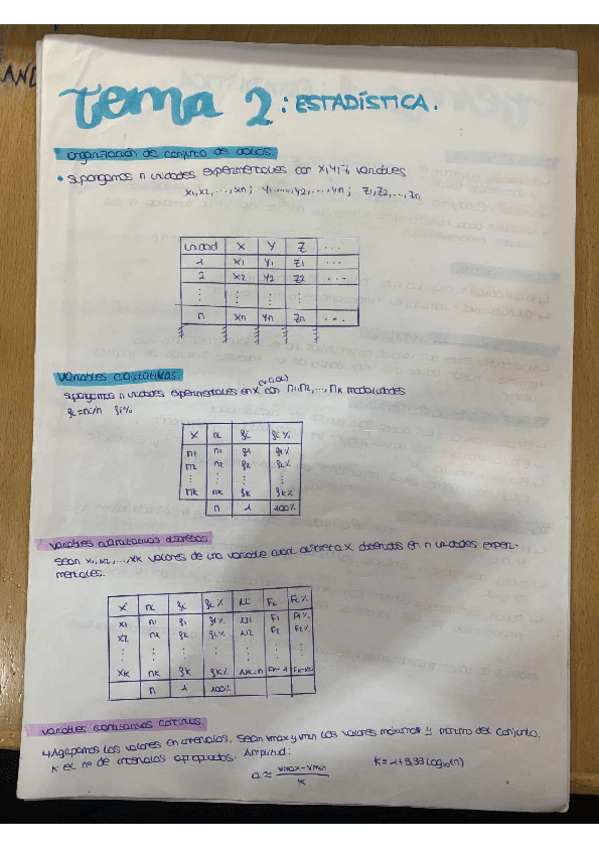 AND
tema 2: ESTADÍSTICA.
organización de conjunto de datos.
• Supongamos n unidades experimentales con x, y, z variables
x1, x2, ..., xn; y1, ..., y2, ..., yn; z1, z2, ..., zn
unidad X Y Z ...
1 x1 y1 z1 ...
2 x2 y2 z2 ...
⋮ ⋮ ⋮ ⋮
n xn yn zn ...
variables cualitativas.
(v.cual)
Supongamos n unidades experimentales en X con m1, m2, ..., mk modalidades
fi=ni/n fi%
X ni fi fi%
m1 n1 f1 f1%
m2 n2 f2 f2%
⋮ ⋮ ⋮ ⋮
mk nk fk fk%
n 1 100%
variables cuantitativas discretas
Sean x1, x2, ..., xk valores de una variable cuant. discreta X obtenidos en n unidades exper-
mentales.
X ni fi fi% Ni Fi Fi%
x1 n1 f1 f1% N1 F1 F1%
x2 n2 f2 f2% N2 F2 F2%
⋮ ⋮ ⋮ ⋮ ⋮ ⋮ ⋮
xk nk fk fk% Nk=n Fk=1
n 1 100%
variables cuantitativas continuas.
↳ Agrupamos los valores en intervalos. Sean vmax y vmin los valores máximos y mínimo del conjunto.
k el nº de intervalos apropiados. Amplitud:
a ≈ vmax-vmin / k
k=1+3,33 log10(n)